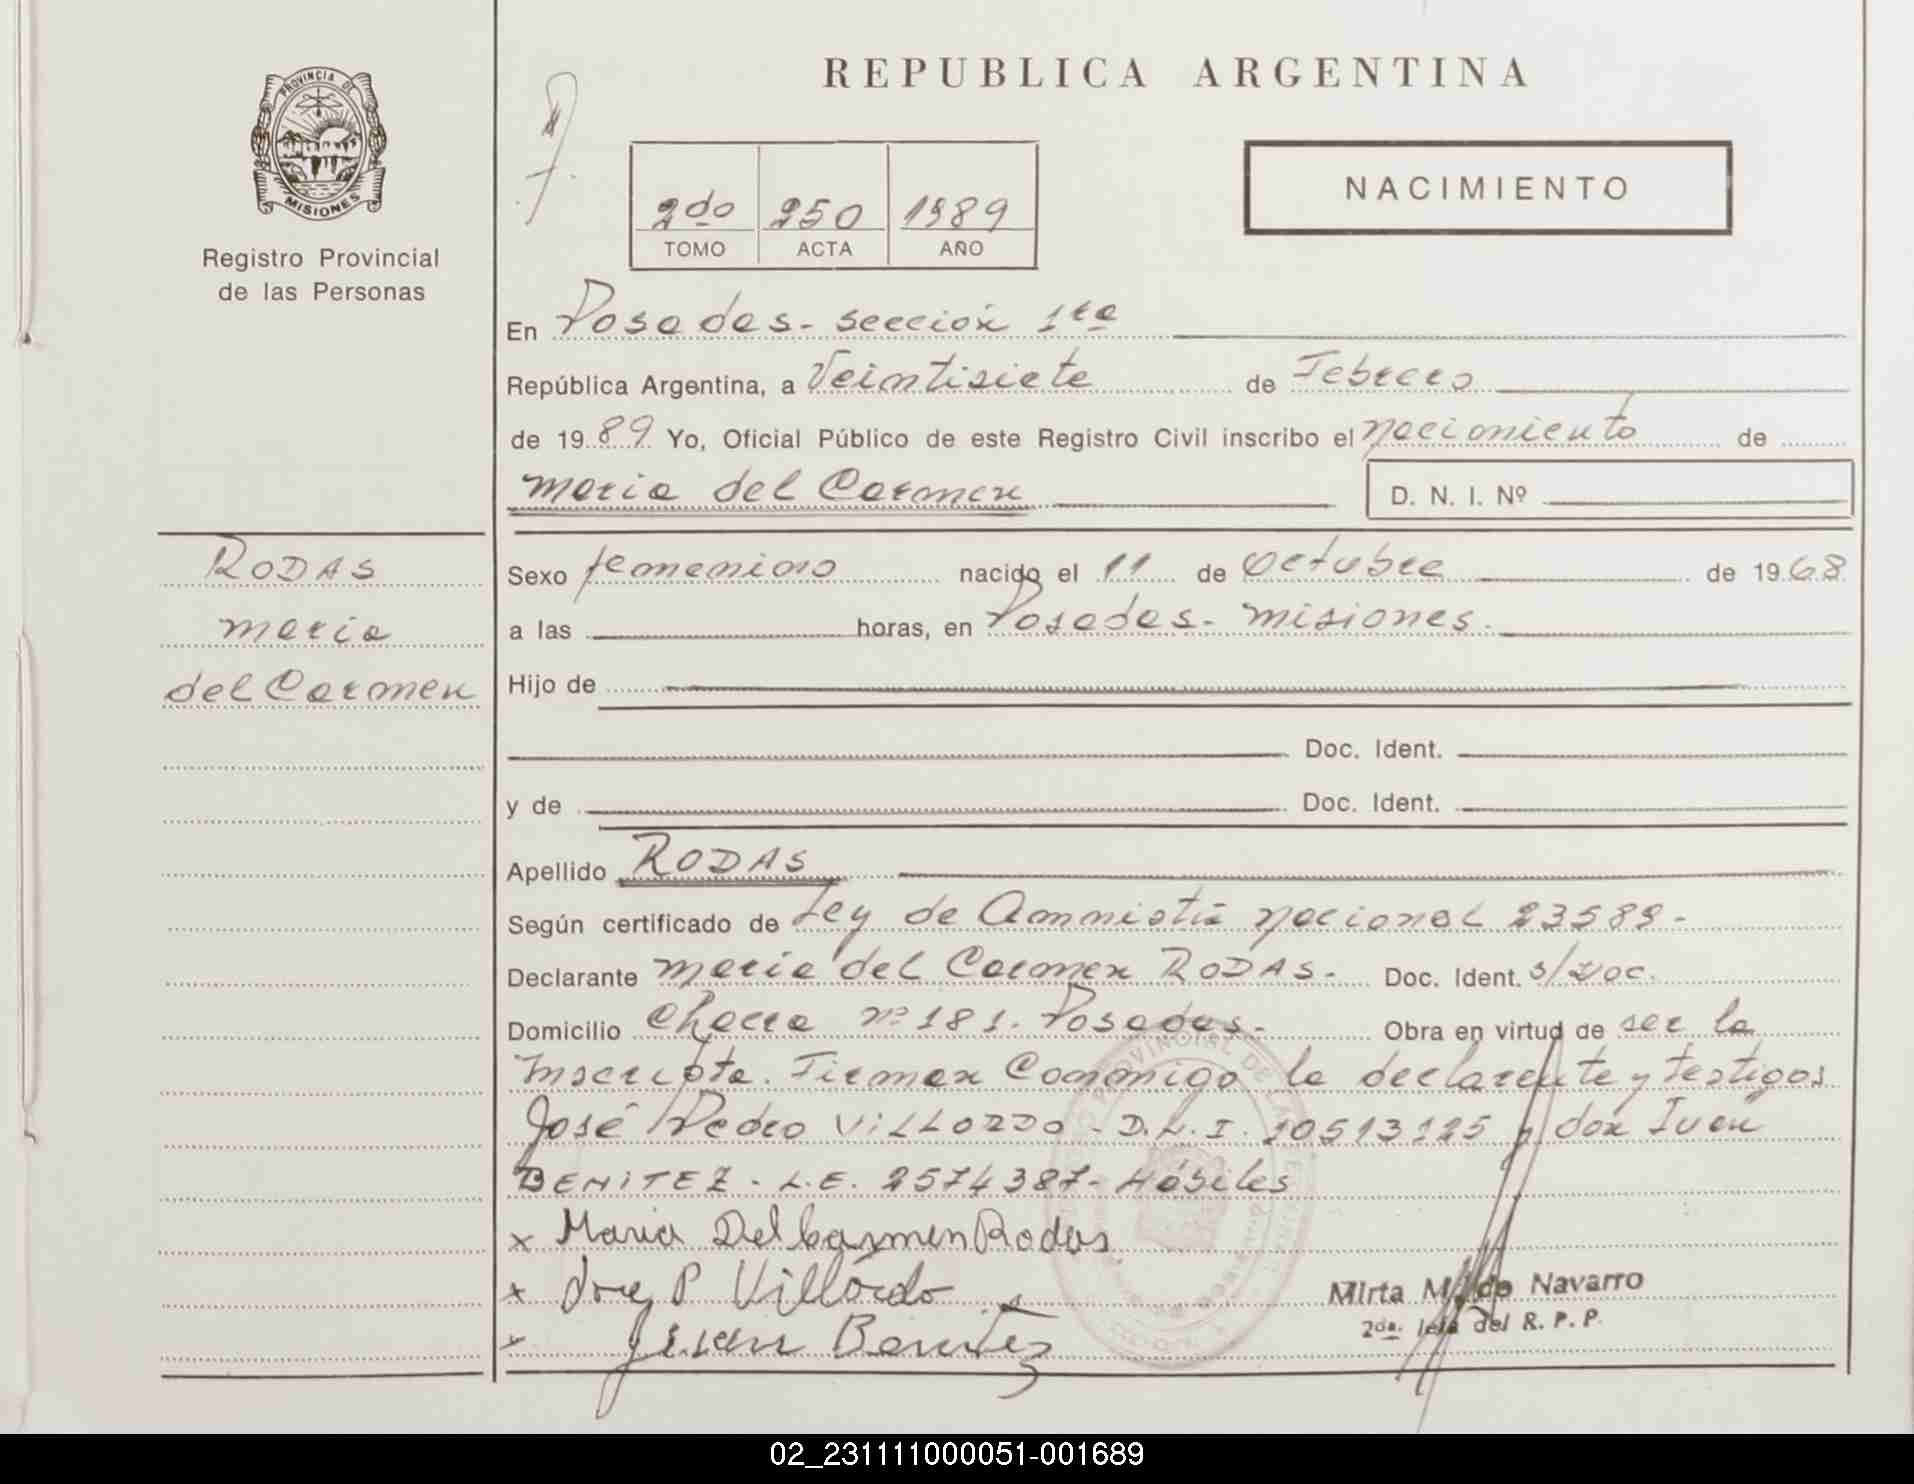 PROVINCIA DE
MISIONES
Registro Provincial
de las Personas
RODAS
Maria
del Carmen
REPUBLICA ARGENTINA
NACIMIENTO
2do 250 1989
TOMO ACTA AÑO
En Posadas - sección 1ra
República Argentina, a Veintisiete de Febrero
de 1989 Yo, Oficial Público de este Registro Civil inscribo el nacimiento de
Maria del Carmen D. N. I. Nº
Sexo femenino nacido el 11 de Octubre de 1968
a las horas, en Posadas - Misiones.
Hijo de
Doc. Ident.
y de Doc. Ident.
Apellido RODAS
Según certificado de Ley de Amnistia Nacional 23589 -
Declarante Maria del Carmen RODAS - Doc. Ident. s/Doc.
Domicilio Chacra nº 181. Posadas - Obra en virtud de ser la
Inscripta. Firman Conmigo la declarante y testigos
José Pedro VILLORDO - D.N.I. 10513125 y don Juan
BENITEZ - L.E. 2574387 - Hábiles
x Maria Del Carmen Rodas
x Jose P Villordo
x Juan Benitez
Mirta M. de Navarro
2da. Jefa del R. P. P.
02_231111000051-001689